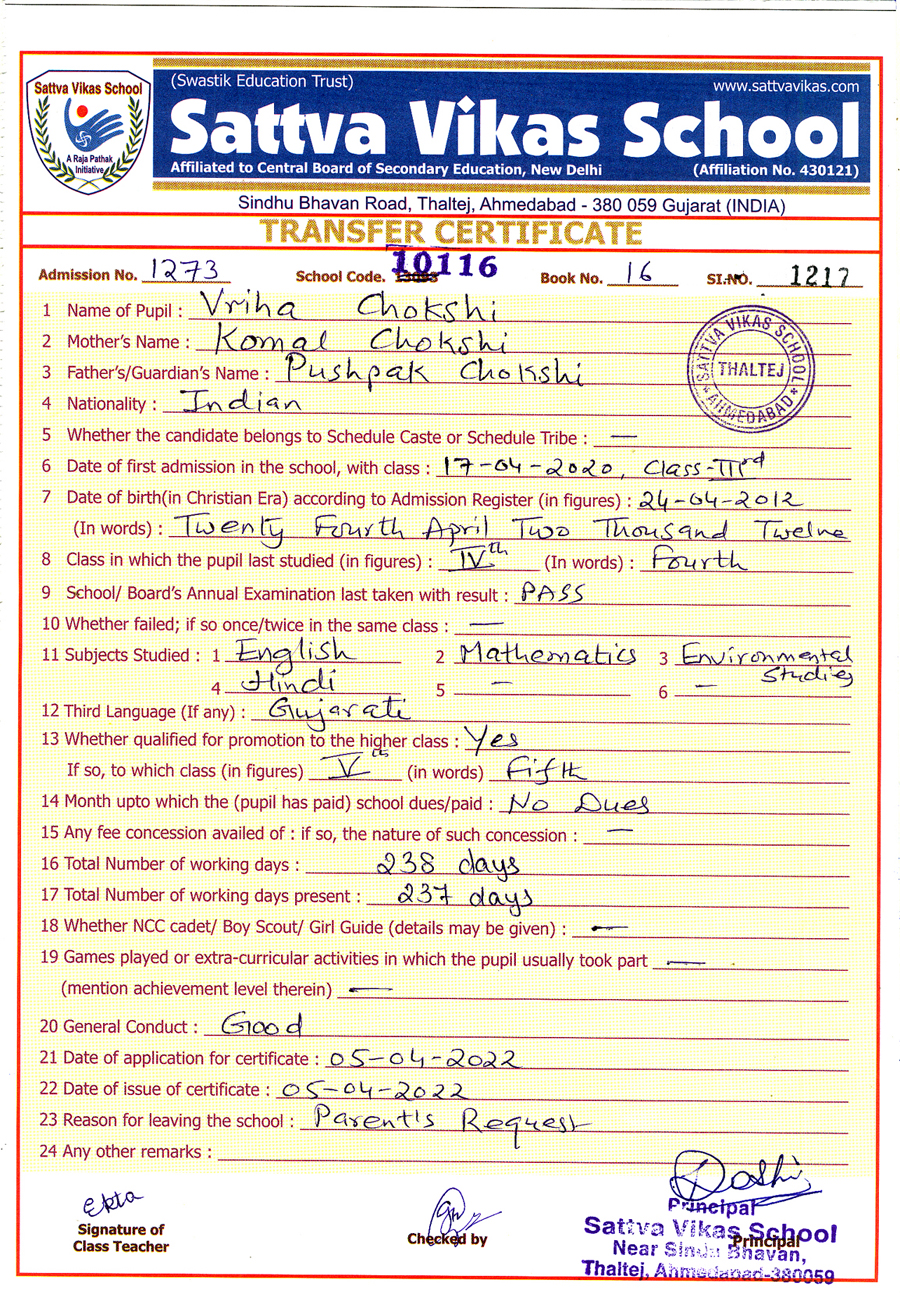 Sattva Vikas School
A Raja Pathak
Initiative
(Swastik Education Trust) www.sattvavikas.com
Sattva Vikas School
Affiliated to Central Board of Secondary Education, New Delhi (Affiliation No. 430121)
Sindhu Bhavan Road, Thaltej, Ahmedabad - 380 059 Gujarat (INDIA)
TRANSFER CERTIFICATE
Admission No. 1273 School Code. 10116 Book No. 16 SI.NO. 1217
1 Name of Pupil : Vriha Chokshi
2 Mother's Name : Komal Chokshi
3 Father's/Guardian's Name : Pushpak Chokshi
SATTVA VIKAS SCHOOL
THALTEJ
* AHMEDABAD *
4 Nationality : Indian
5 Whether the candidate belongs to Schedule Caste or Schedule Tribe : —
6 Date of first admission in the school, with class : 17-04-2020, Class-IIIrd
7 Date of birth(in Christian Era) according to Admission Register (in figures) : 24-04-2012
(In words) : Twenty Fourth April Two Thousand Twelve
8 Class in which the pupil last studied (in figures) : IVth (In words) : Fourth
9 School/ Board's Annual Examination last taken with result : PASS
10 Whether failed; if so once/twice in the same class : —
11 Subjects Studied : 1 English 2 Mathematics 3 Environmental Studies
4 Hindi 5 — 6 —
12 Third Language (If any) : Gujarati
13 Whether qualified for promotion to the higher class : Yes
If so, to which class (in figures) Vth (in words) Fifth
14 Month upto which the (pupil has paid) school dues/paid : No Dues
15 Any fee concession availed of : if so, the nature of such concession : —
16 Total Number of working days : 238 days
17 Total Number of working days present : 237 days
18 Whether NCC cadet/ Boy Scout/ Girl Guide (details may be given) : —
19 Games played or extra-curricular activities in which the pupil usually took part —
(mention achievement level therein) —
20 General Conduct : Good
21 Date of application for certificate : 05-04-2022
22 Date of issue of certificate : 05-04-2022
23 Reason for leaving the school : Parent's Request
24 Any other remarks :
Ekta
Signature of
Class Teacher
Checked by
Doshi
Principal
Sattva Vikas School
Principal
Near Sindu Bhavan,
Thaltej, Ahmedabad-380059